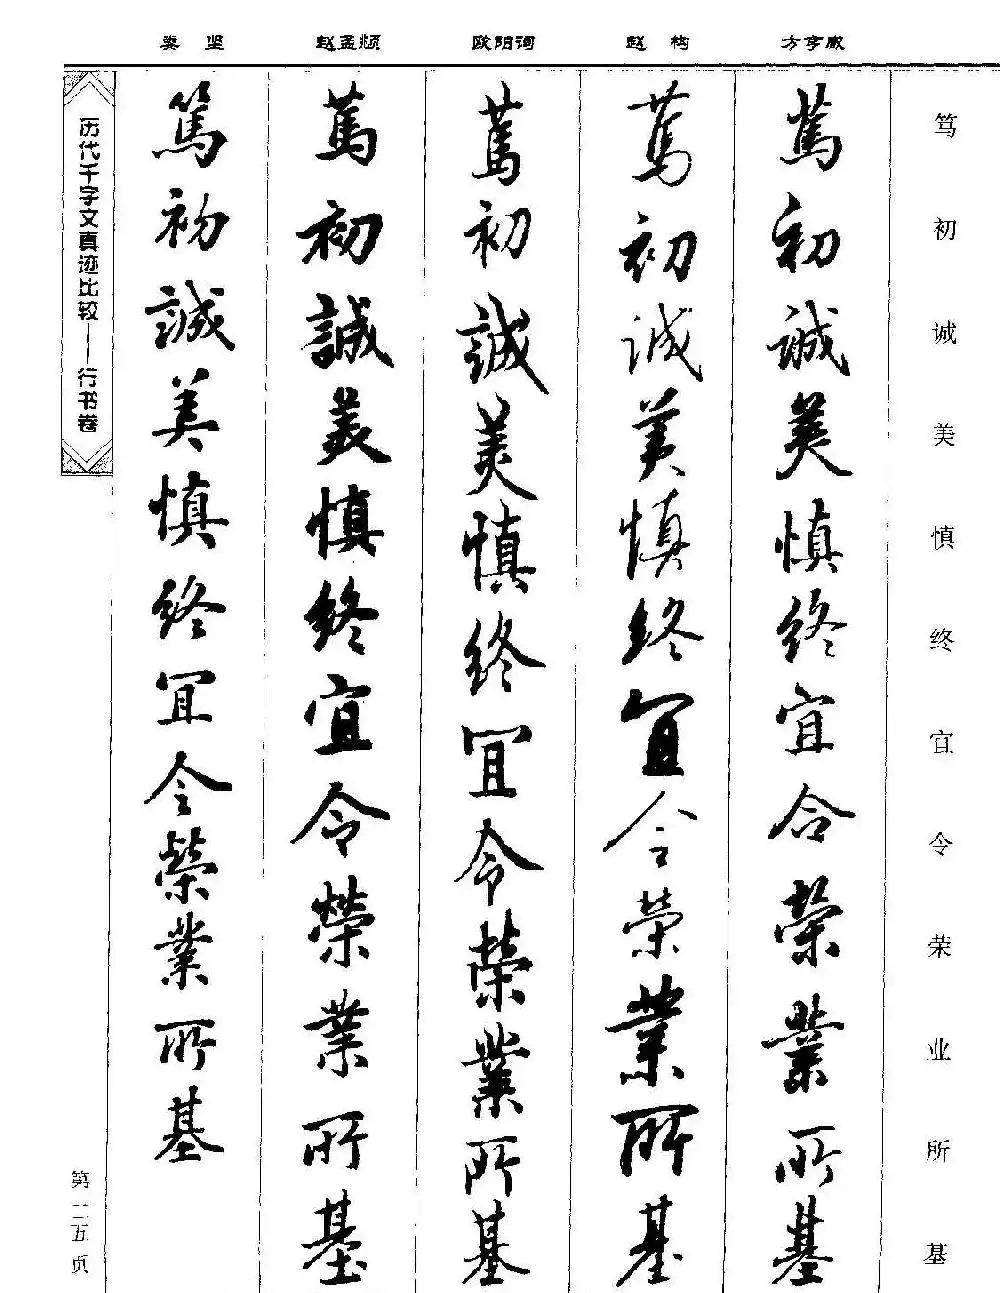 娄坚 赵孟頫 欧阳询 赵构 方亨咸
笃初诚美慎终宜令荣业所基
篤初誠美慎終宜令榮業所基
篤初誠美慎終宜令榮業所基
篤初誠美慎終宜令榮業所基
篤初誠美慎終宜令榮業所基
篤初誠美慎終宜令榮業所基
历代千字文真迹比较——行书卷
第二五页